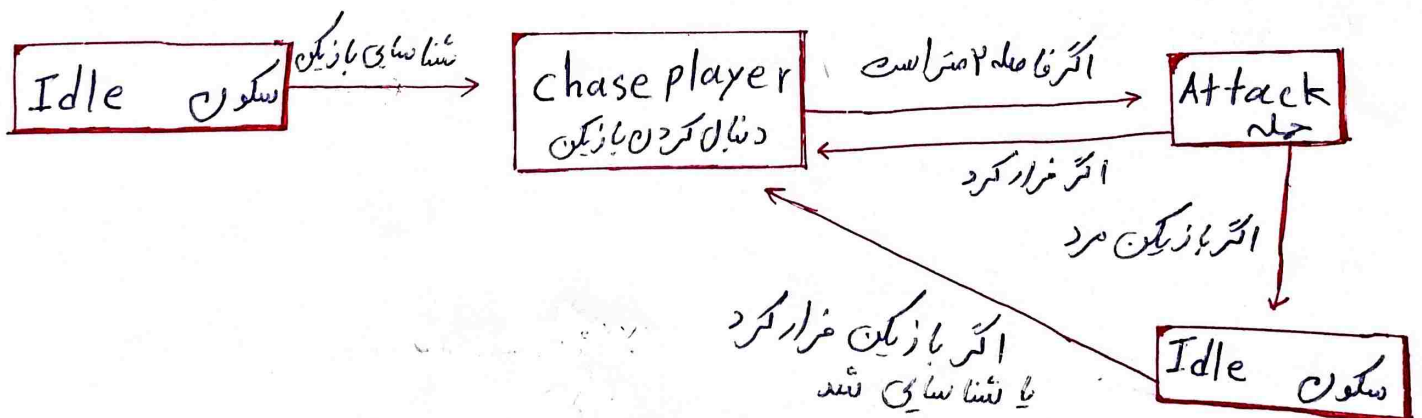 Idle سکون
شناسایی بازیکن
chase player
دنبال کردن بازیکن
اگر فاصله ۲ متر است
Attack
حمله
اگر فرار کرد
اگر بازیکن مرد
اگر بازیکن فرار کرد
یا شناسایی شد
Idle سکون